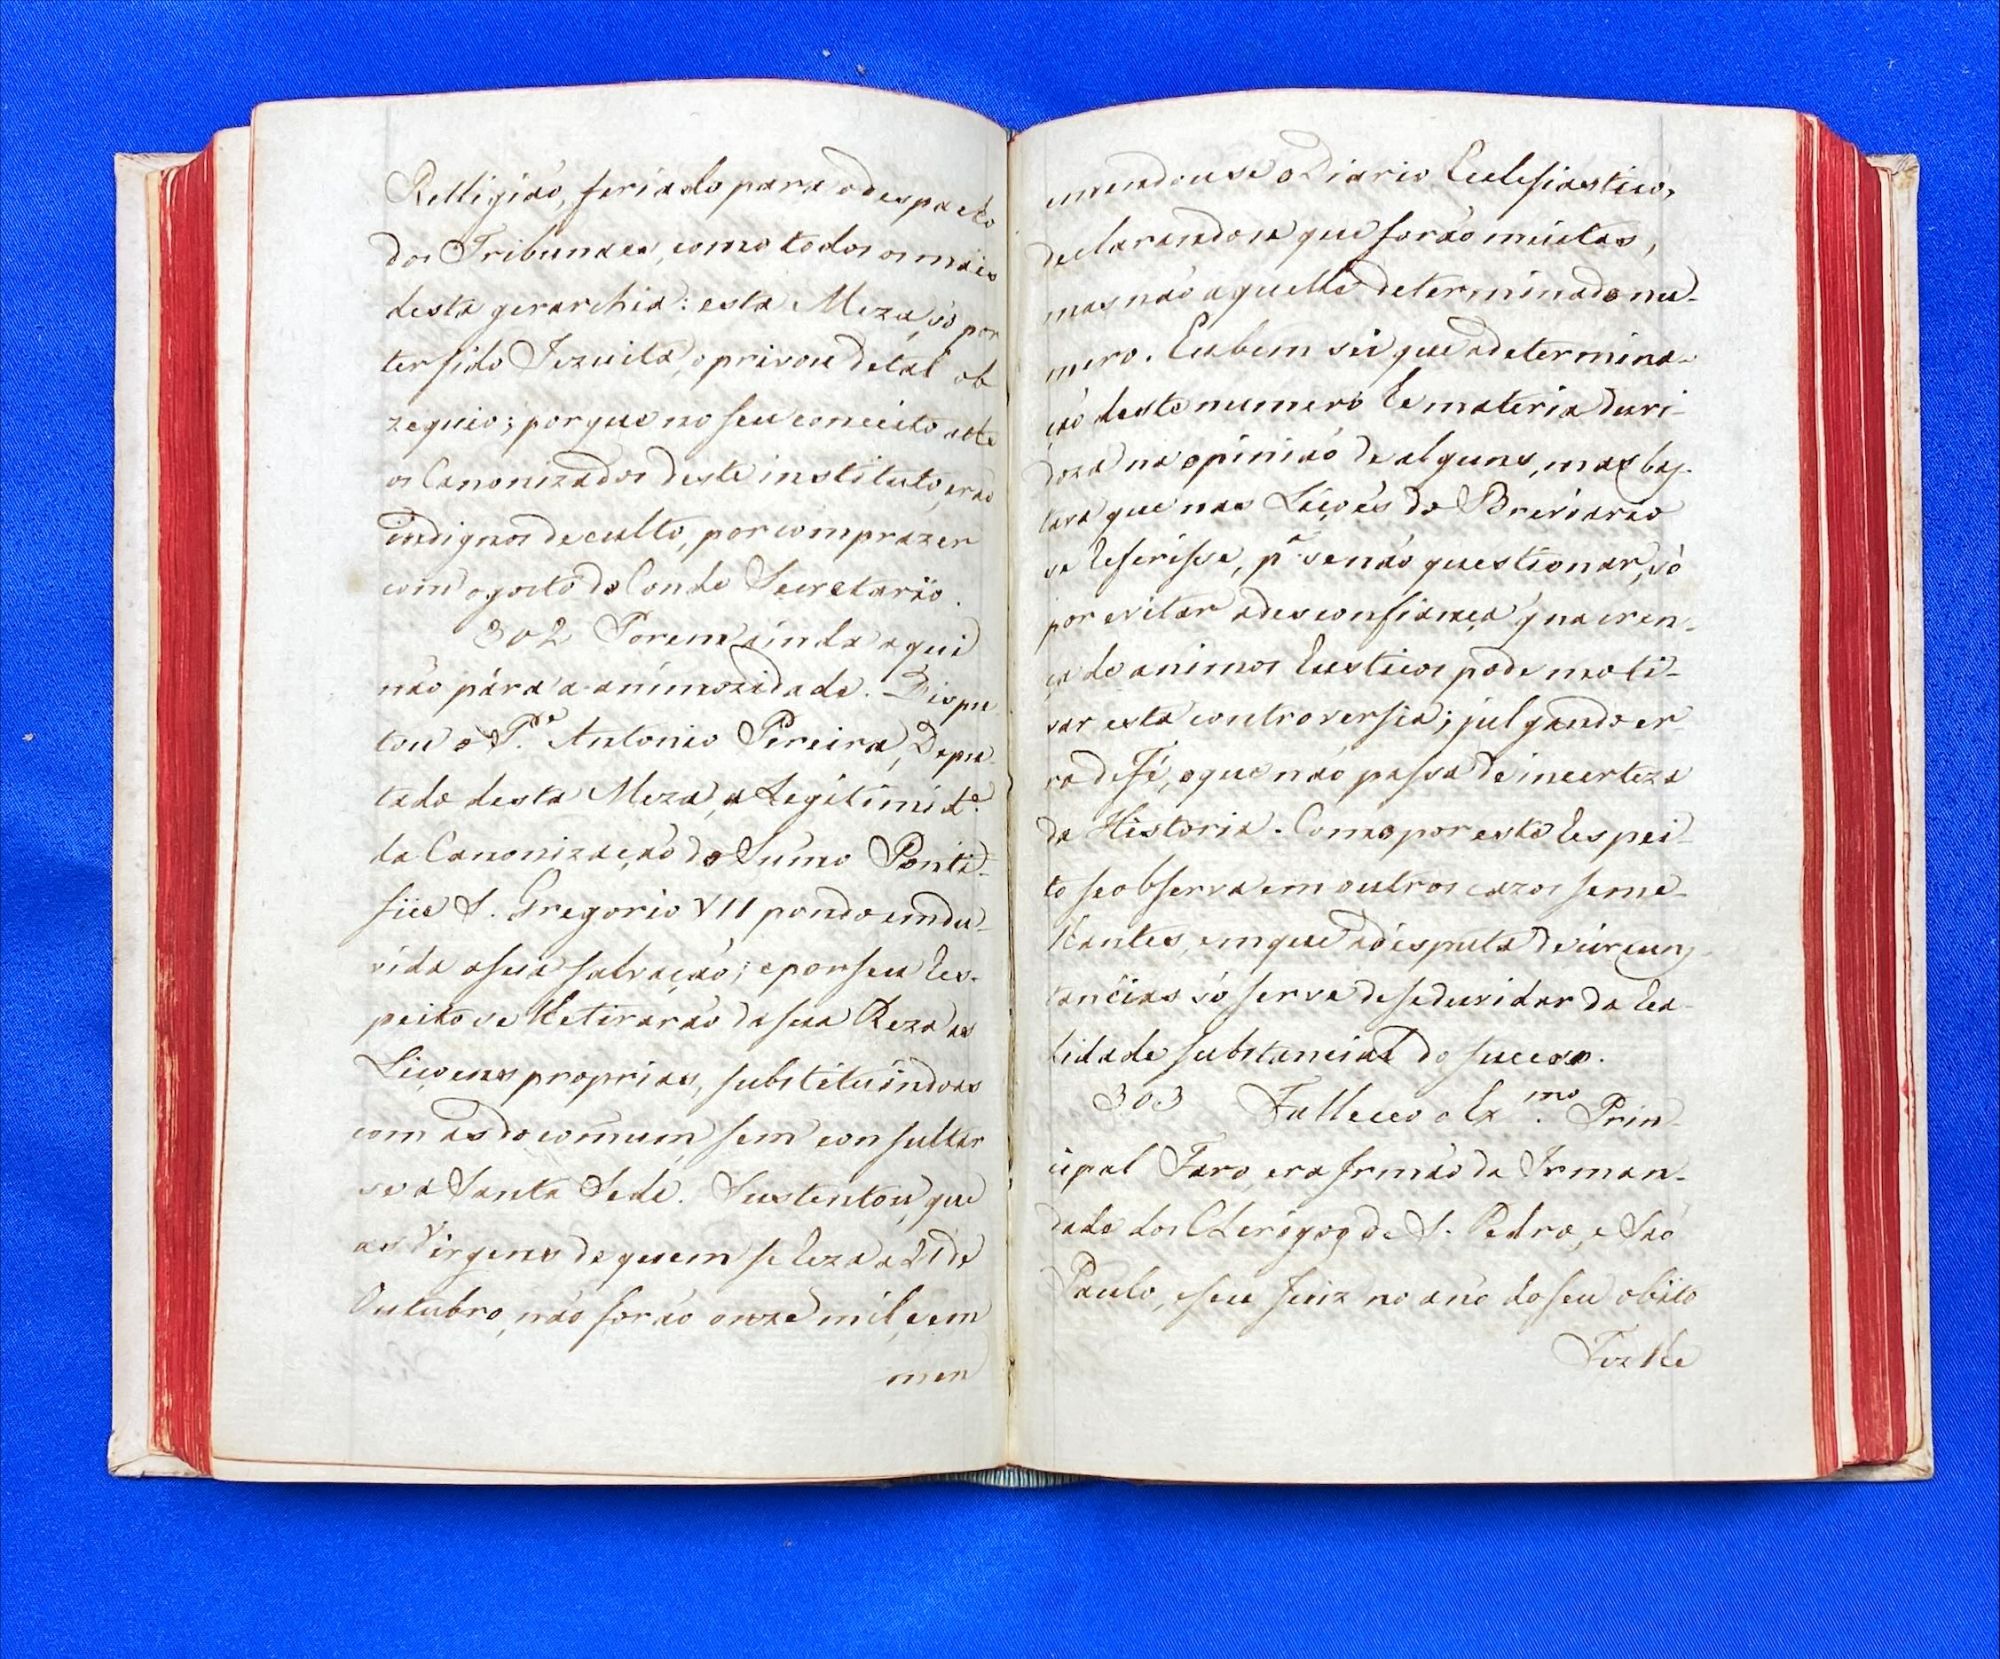 Relligiaó, feriado para o despacho
dos Tribunaes, como todos os mais
desta gerarchia: esta Meza, só por
ter sido Jezuita, o privou de tal ob
zequio; porque no seu conceito athe
os Canonizados deste instituto, eraó
indignos de culto, por comprazer
com o gosto do Conde Secretario.
302 Porem ainda aqui
não pára a animozidade. Dispu
tou o P.e Antonio Pereira, Depu-
tado desta Meza, a Legitimid.e
da Canonizaçaó do Sumo Ponti-
fice S. Gregorio VII pondo em du-
vida a sua salvaçaó; e por seu res-
peito se retiraraó da sua Reza as
Liçoens proprias, substituindoas
com as do comum, sem consultar
se a Santa Sede. Sustentou, que
as Virgens de quem se reza a 21 de
Outubro, não foraó onze mil, e em
men
mendou se o Diario Ecclesiastico,
declarandose que foraó muitas,
mas naó aquelle determinado nu-
mero. Eu bem sei que a determina-
çaó deste numero he materia duvi-
doza na opiniaó de alguns, mas bas-
tava que nas Liçoés do Breviario
se referisse, p.a se naó questionar, só
por evitar a desconfiança q̃ na cren-
ça de animos rusticos pode moti-
var esta controversia; julgando er
ro de Fé, o que naó passa de incerteza
da Historia. Como por este respei-
to se observa em outros cazos seme-
lhantes, em que a disputa de circuns
tancias só serve de se duvidar da rea-
lidade substancial do sucesso.
303 Falleceo o Ex.mo Prin-
cipal Faro, era Irmaó da Irman-
dade dos Clerigos de S. Pedro, e Saó
Paulo, e seu Juiz no ano do seu obito
Forlhe